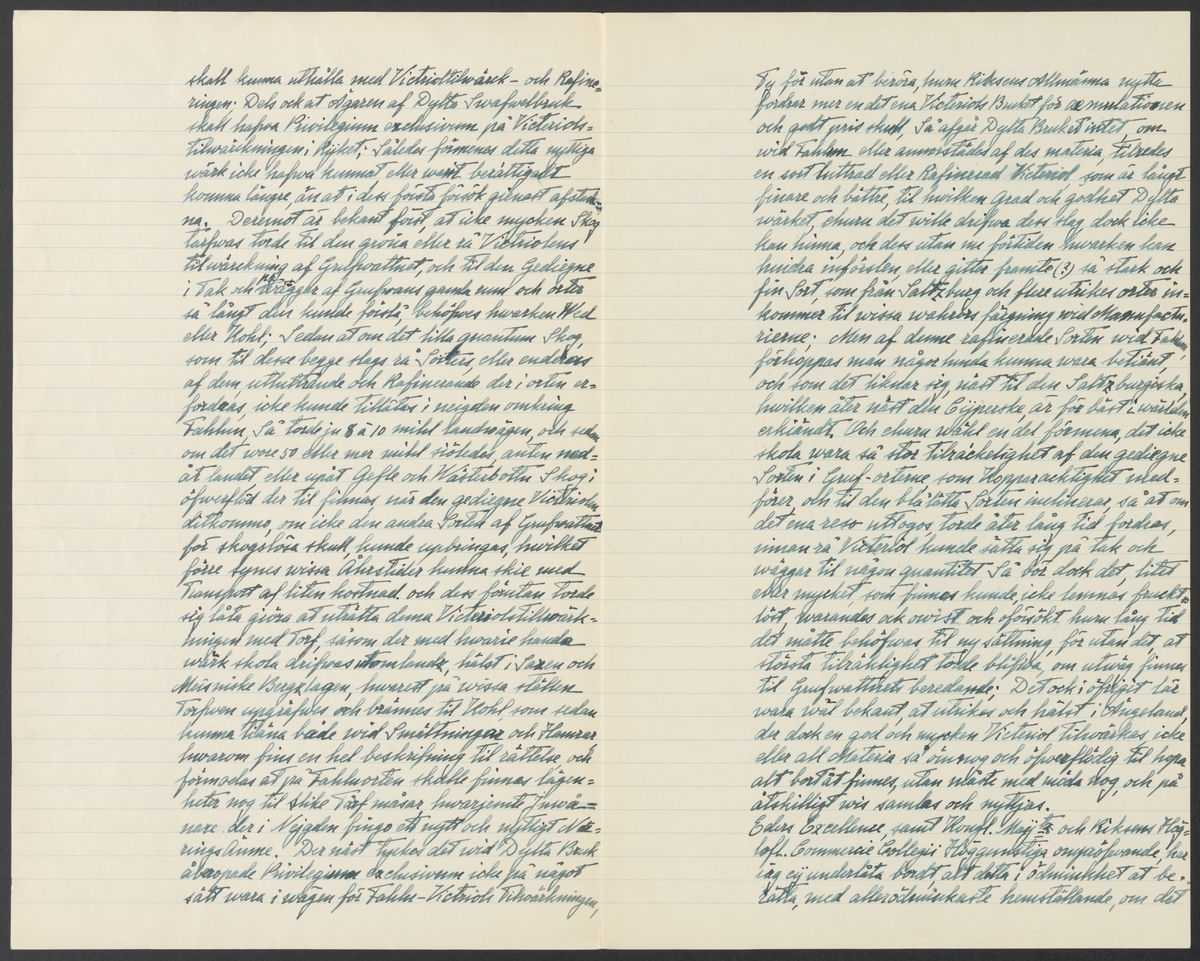 skall kunna uthålla med Victrioltilwärck- och Rafine=
ringen: Dels ock at Ägaren af Dylta Swafwelbruk
skall hafwa Privilegium exclusivum på Victriols=
tilwärckningen i Rijket; Således förmenes detta nyttiga
wärk icke hafwa kunnat eller warit berättigadt
komma längre, än at i dess första försök genast afstad=
na. Deremot är bekant först, at icke mycken Skog
tarfwas torde til den gröna eller rå Victriolens
tilwärckning af Grufwattnet, och til den Gediegne
i Tak och wäggar af Grufwans gamla rum och orter
så långt den kunde förslå, behöfwes hwarken Wed
eller Kohl; Sedan at om det lilla quantum Skog,
som til desse begge slags rå Sorters, eller enderas
af dem, utluttrande och Rafinerande der i orten er=
fordras, icke kunde tillåtas i neigden omkring
Fahlun, Så torde ju 8 à 10 mihl landwägen, och sedan
om det wore 50 eller mer mihl siöledes, anten ned=
åt landet eller upåt Gefle och Wästerbotn Skog i
öfwerflöd der til finnas, när den gediegne Victriolen
ditkomme, om icke den andra Sorten af Grufwattnet
för skogslösa skull, kunde upbringas, hwilket
förre synes wissa Åhrstider kunna skie med
Transport af liten kostnad, och dess förutan torde
sig låta giöra at uträtta denna Victriolstillwärk=
ningen med Torf, såsom der med hwarie handa
wärk skola drifwas utomlandz, hälst i Saxen och
Meisniske Bergzlagen, hwarest på wissa ställen
Torfwen upgräfwes och brännes til Kohl, som sedan
kunna tiäna både wid Smältningar och Hamrar,
hwarom fins en hel beskrifning til rättelse och
förmodas at på Fahluorten skulle finnas lägen=
heter nog til slike Torf måsar, hwarjemte Inwå=
nare der i Nejgden finge ett nytt och nyttigt Nä=
rings Ämne. Der näst tyckes det wid Dylta Bruk
åberopade Privilegium exclusivum icke på något
sätt wara i wägen för Fahlu-Victriols Tilwärkningen,
Ty för utan at beröra, huru Riksens Allmänna nytta
fordrar mer en det ena Victriols Bruket för æmulationen
och godt pris skull, Så afgår Dylta Bruket intet, om
wid Fahlun eller annorstädes af des materia, tilredes
en sort luttrad eller Rafinerad Victriol, som är långt
finare och bättre, til hwilken Grad och godhet Dylta
wärket, ehuru det wille drifwa dess slag, dock icke
kan hinna, och dess utan nu förtiden hwarken kan
hindra införslen eller gitter framte (?) så stark och
fin Sort, som från Saltzburg och flere utrikes orter in=
kommer til wissa wahrors färgning wid Manufactu-
rierne; Men af denne rafinerade Sorten wid Fahlun,
förhoppas man någor lunda kunna wara betiänt,
och som det liknar sig, näst til den Saltzburgiska,
hwilken åter näst den Cijperske, är för bäst i wärlden
erkiändt. Och ehuru wähl en del förmena, det icke
skola wara så stor tilräckelighet af den gediegne
Sorten i Gruf-orterne, som Kopparacktighet med-
förer och til den blålätta Sorten inclinerar, så at om
det ena reso uttogos, torde åter lång tid fordras,
innan rå Victeriol kunde sätta sig på tak och
wäggar til någon quantitet Så bör dock det, litet
eller mycket, som finnas kunde, icke lemnas frukt=
löst, warandes ock owist och oförsökt huru lång tid
det måtte behöfwas til ny sättning, för utan det, at
största tilräcklighet torde blifwa, om utwäg finnes
til Grufwattnets beredande: Det ock i öfrigt lär
wara wäl bekant, at utrikes och hälst i Ängeland,
der dock en god och mycken Victriol tilwärkas, icke
eller all Materia så ömnog och öfwerflödig til hopa
alt bortåt finnes, utan måste med möda nog, och på
åtskilligt wis samlas och nyttjas.
Eders Excellence, samt Kongl. Maij:tz och Riksens Hög-
lofl. Commercie Collegii Höggunstiga ompröfwande, har
iag eij underlåta bordt, alt detta i ödmiukhet at be-
rätta, med allerödmiukaste hemställande, om det